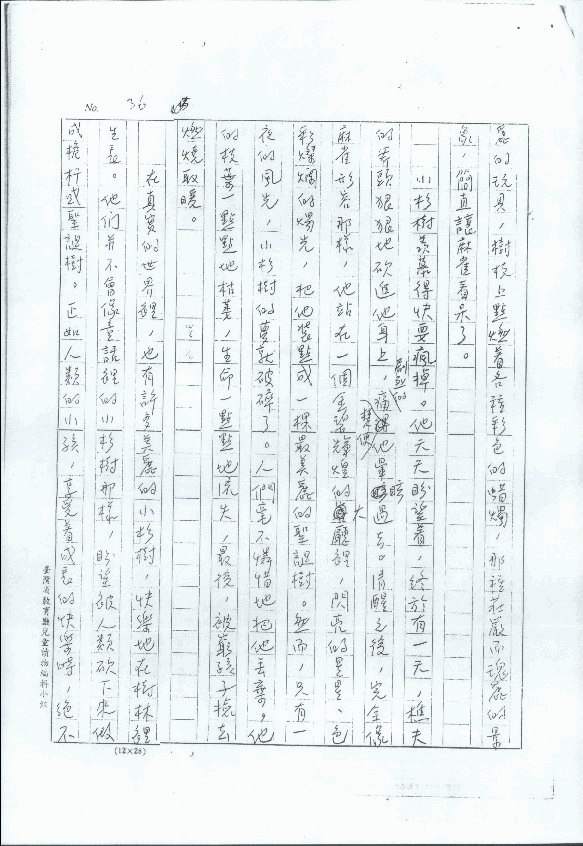 No. 36
麗的玩具，樹枝上點燃著各種彩色的蠟燭，那種莊嚴而瑰麗的景
象，簡直讓麻雀看呆了。
小杉樹羨慕得快要瘋掉。他天天盼望著，終於有一天，樵夫
的斧頭狠狠地砍進他身上，劇烈的痛楚使他暈眩過去。清醒之後，完全像
麻雀形容那樣，他站在一個金碧輝煌的大廳裡，閃亮的星星、色
彩燦爛的燭光，把他裝點成一棵最美麗的聖誕樹。然而，只有一
夜的風光，小杉樹的夢就破碎了。人們毫不憐惜地把他丟棄。他
的枝葉一點點地枯萎，生命一點點地流失，最後，被窮孩子撿去
燃燒取暖。
在真實的世界裡，也有許多美麗的小杉樹，快樂地在樹林裡
生長。他們並不會像童話裡的小杉樹那樣，盼望被人類砍下來做
成桅杆或聖誕樹。正如人類的小孩，享受著成長的快樂時，絕不
臺灣省教育廳兒童讀物編輯小組
(12×26)